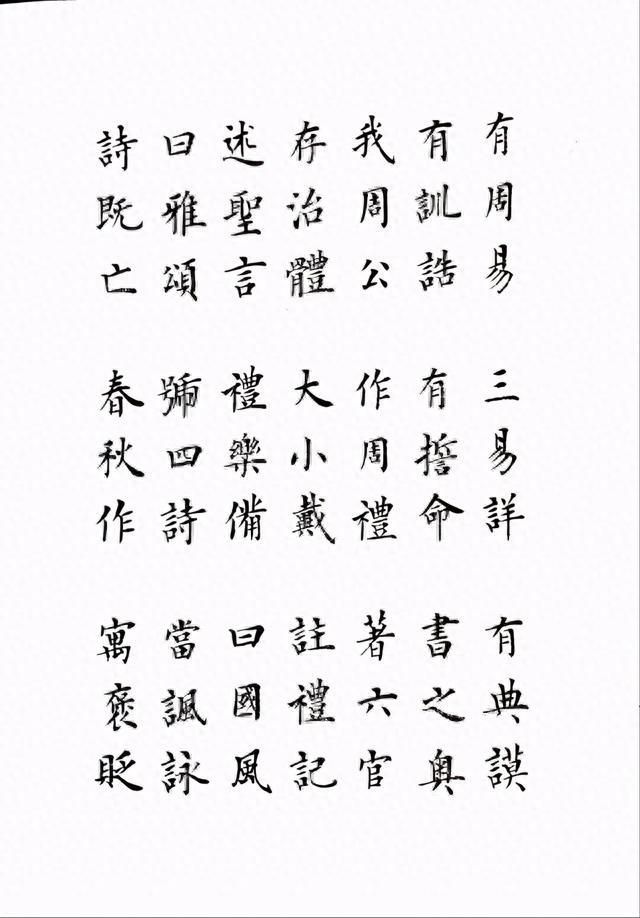 有周易三易詳有典謨
有訓誥有誓命書之奥
我周公作周禮著六官
存治體大小戴註禮記
述聖言禮樂備曰國風
曰雅頌號四詩當諷詠
詩既亡春秋作寓褒貶